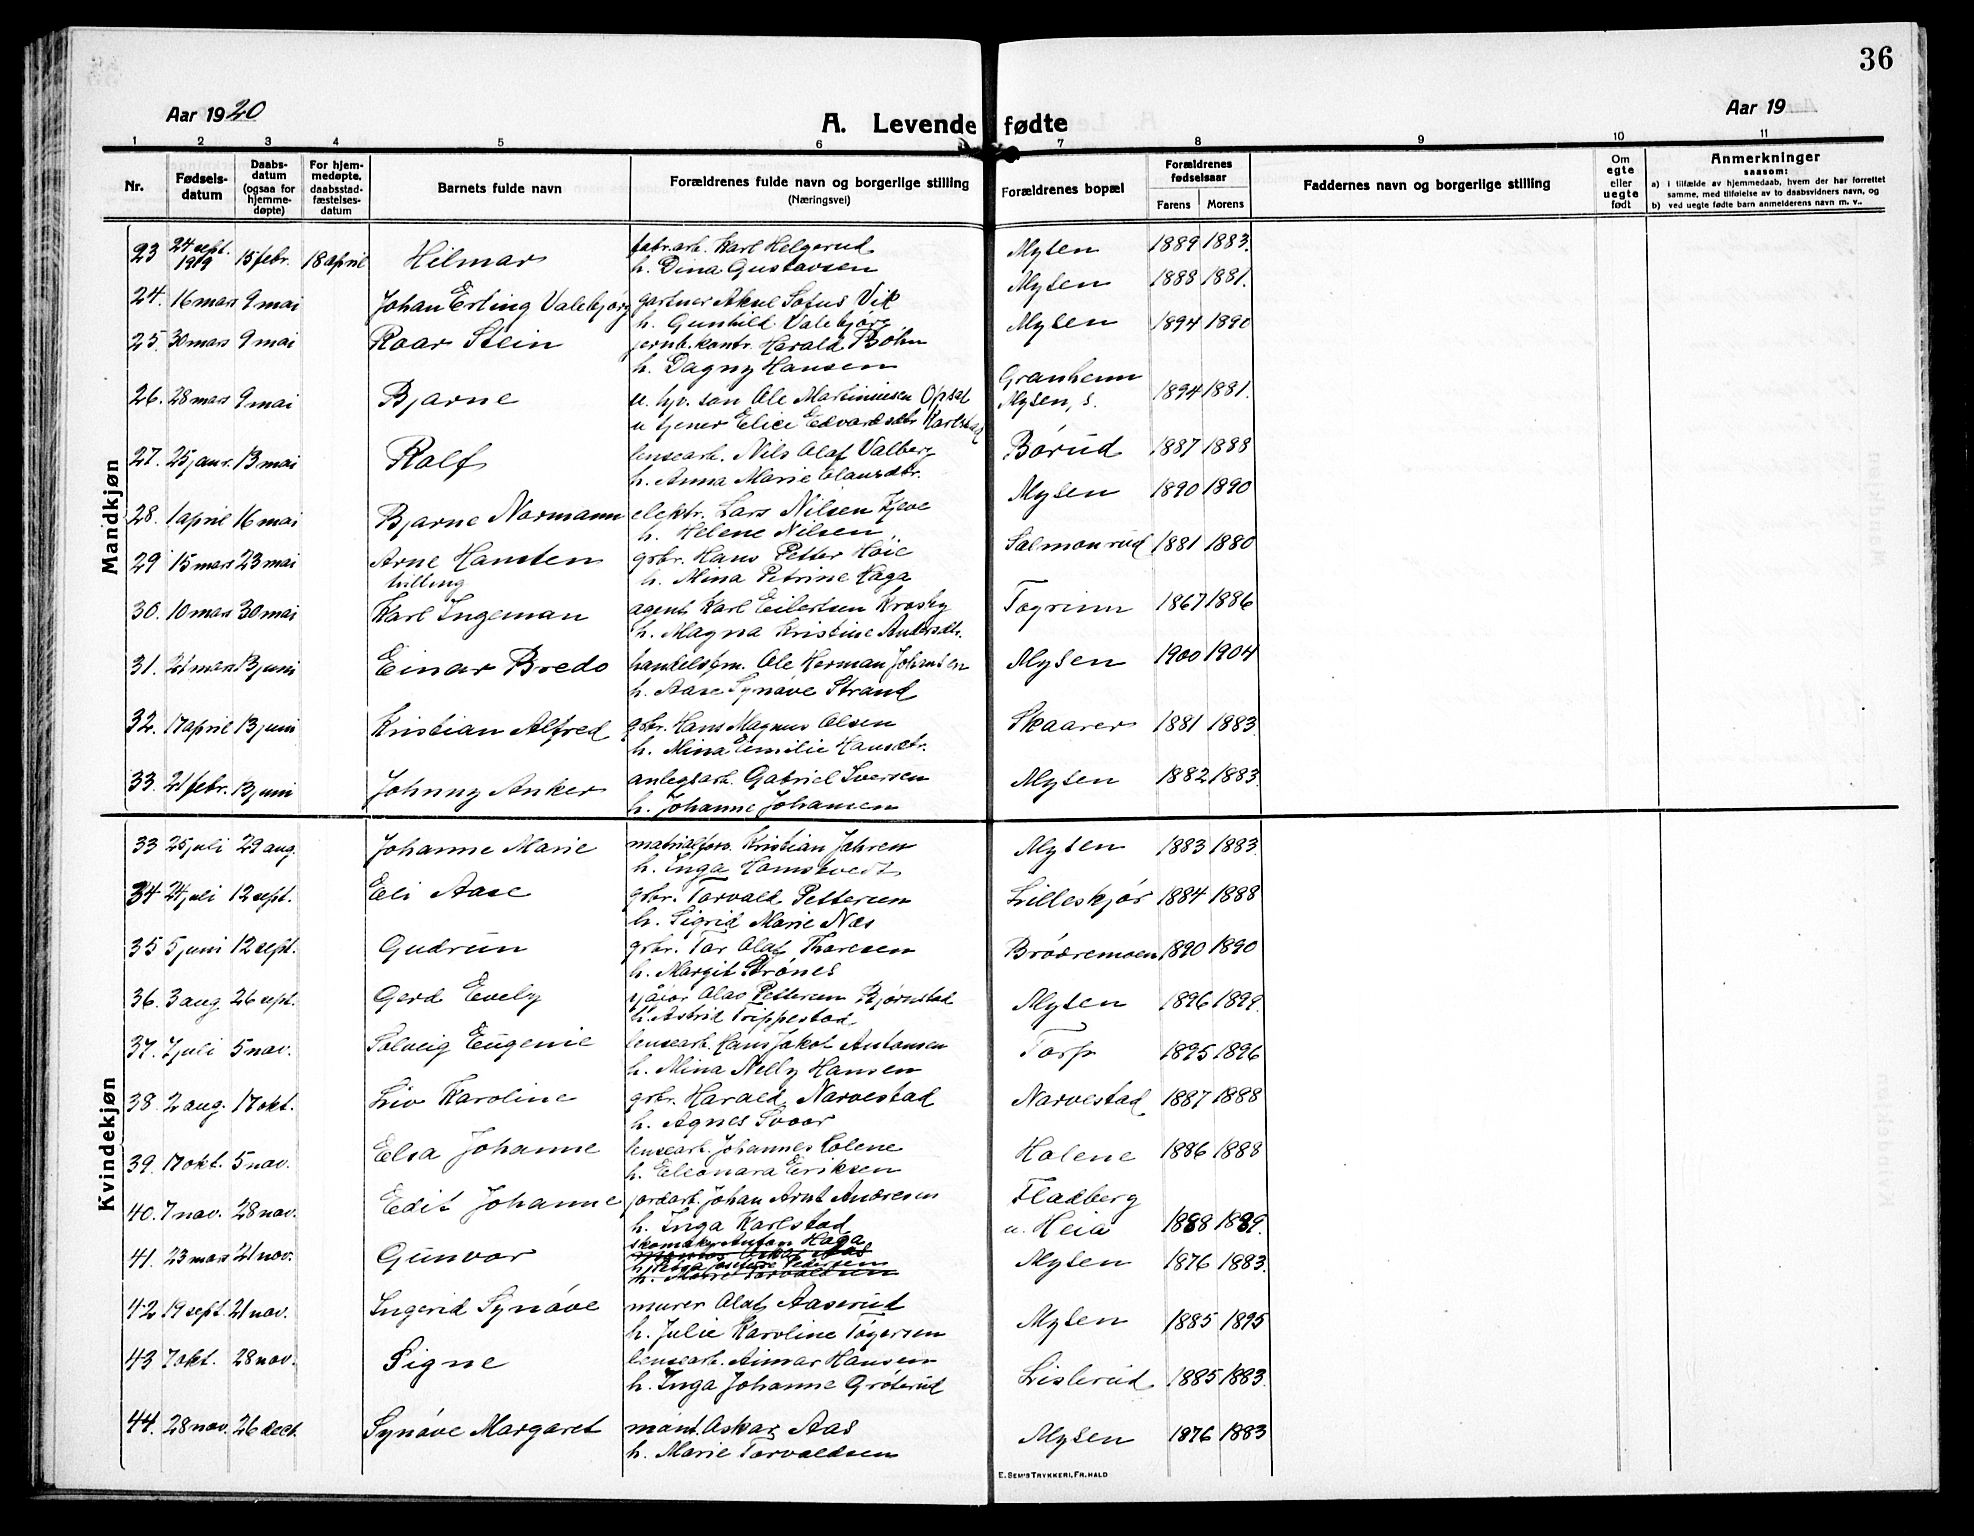 36
Aar 1920
A. Levende fødte
Aar 19
1 2 3 4 5 6 7 8 9 10 11
Nr.
Fødsels-
datum
Daabs-
datum
(ogsaa for
hjemme-
døpte)
For hjem-
medøpte,
daabsstad-
fæstelses-
datum
Barnets fulde navn
Forældrenes fulde navn og borgerlige stilling
(Næringsvei)
Forældrenes bopæl
Forældrenes
fødselsaar
Farens Morens
Faddernes navn og borgerlige stilling
Om
egte
eller
uegte
født
Anmerkninger
saasom:
a) i tilfælde av hjemmedaab, hvem der har forrettet
samme, med tilføielse av to daabsvidners navn, og
b) ved uegte fødte barn anmelderens navn m. v..
Mandkjøn
23 24 sept. 1919 15 febr. 18 april Hilmar fabr.arb. Karl Helgerud Mysen 1889 1883.
h. Dina Gustavsen
24. 16 mars 9 mai Johan Erling Valebjørg gartner Aksel Sofus Vik Mysen 1888 1881.
h. Gunhild Valebjørg
25. 30 mars 9 mai Roar Stein jernb.kontr. Harald Bøhn Mysen 1894 1890
h. Dagny Hansen
26. 28 mars 9 mai Bjarne u. hjv. søn Ole Martiniusen Opsal Granheim Mysen, s. 1894 1881.
u tjener Elice Edvardsdtr Karlstad
27. 25 janr. 13 mai Rolf lensearb. Nils Olaf Valberg Børud 1887 1888
h. Anna Marie Olausdtr.
28. 1 april 16 mai Bjarne Normann elektr. Lars Nilsen Kjeve Mysen 1890 1890
h. Helene Nilsen
29 15 mars 23 mai Arne Hansten gbr. Hans Petter Høie Salmonrud 1881 1880
tvilling h. Mina Petrine Haga
30. 10 mars 30 mai Karl Ingeman agent Karl Eilertsen Krosby Togrinn 1867 1886
h. Magna Kristine Andersdtr.
31. 21 mars 13 juni Einar Bredo handelsfm. Ole Herman Johansen Mysen 1900 1904
h. Aase Synøve Strand
32. 17 april 13 juni Kristian Alfred gbr. Hans Magnus Olsen Skaarer 1881 1883
h. Mina Emilie Hansdtr.
33. 21 febr. 13 juni Johnny Anker anlegsarb. Gabriel Iversen Mysen 1882 1883
h. Johanne Johansen
Kvindekjøn
33 25 juli 29 aug. Johanne Marie matrialforv. Kristian Jahren Mysen 1883 1883.
h. Inga Homstvedt
34 24 juli 12 sept. Eli Aase gbr. Torvald Pettersen Lilleskjør 1884 1888
h. Sigrid Marie Næs
35 5 juni 12 sept. Gudrun gbr. Tor Olaf Thoresen Brødremoen 1890 1890
h. Margit Strønes
36. 3 aug. 26 sept. Gerd Evely Olav Pettersen Bjørnstad Mysen 1896 1899.
h. Astrid Trippestad
37. 7 juli 5 nov. Solveig Eugenie lensearb. Hans Jakob Antonsen Torp 1895 1896
h. Mina Nelly Hansen
38. 2 aug. 17 okt. Liv Karoline gbr. Harald Narvestad Narvestad 1887 1888
h. Agnes Svoor
39. 17 okt. 5 nov. Elsa Johanne lensearb. Johannes Holene Holene 1886 1888
h. Eleonora Eriksen
40. 7 nov. 28 nov. Edit Johanne jordarb. Johan Arnt Andresen Fladberg u. Heia 1888 1889.
h. Inga Karlstad
41. 23 mars 21 nov. Gunvor skomaker Anton Haga Mysen 1876 1883.
Josefine Pedersen
42 19 sept. 21 nov. Ingerid Synøve murer Olaf Aaserud Mysen 1885 1895
h. Julie Karoline Togersen
43 7 okt. 28 nov. Signe lensearb. Aimar Hansen Lislerud 1885 1883.
h. Inga Johanne Grøterud
44. 28 nov. 26 dect. Synøve Margaret mont. Oskar Aas Mysen 1876 1883
h. Marie Torvaldsen
E. SEM'S TRYKKERI, FR. HALD